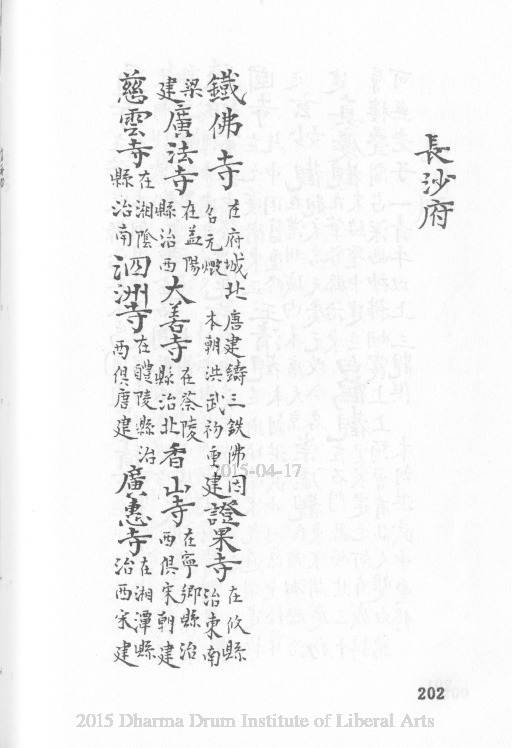 長沙府
鐵佛寺在府城北唐建鑄三鉄佛因名元燬本朝洪武初重建證果寺在攸縣治東南
梁建廣法寺在益陽縣治西大善寺在茶陵縣治北香山寺在寧鄉縣治西俱宋朝建
慈雲寺在湘陰縣治南泗洲寺在醴陵縣治西俱唐建廣惠寺在湘潭縣治西宋建
2015-04-17
202
2015 Dharma Drum Institute of Liberal Arts